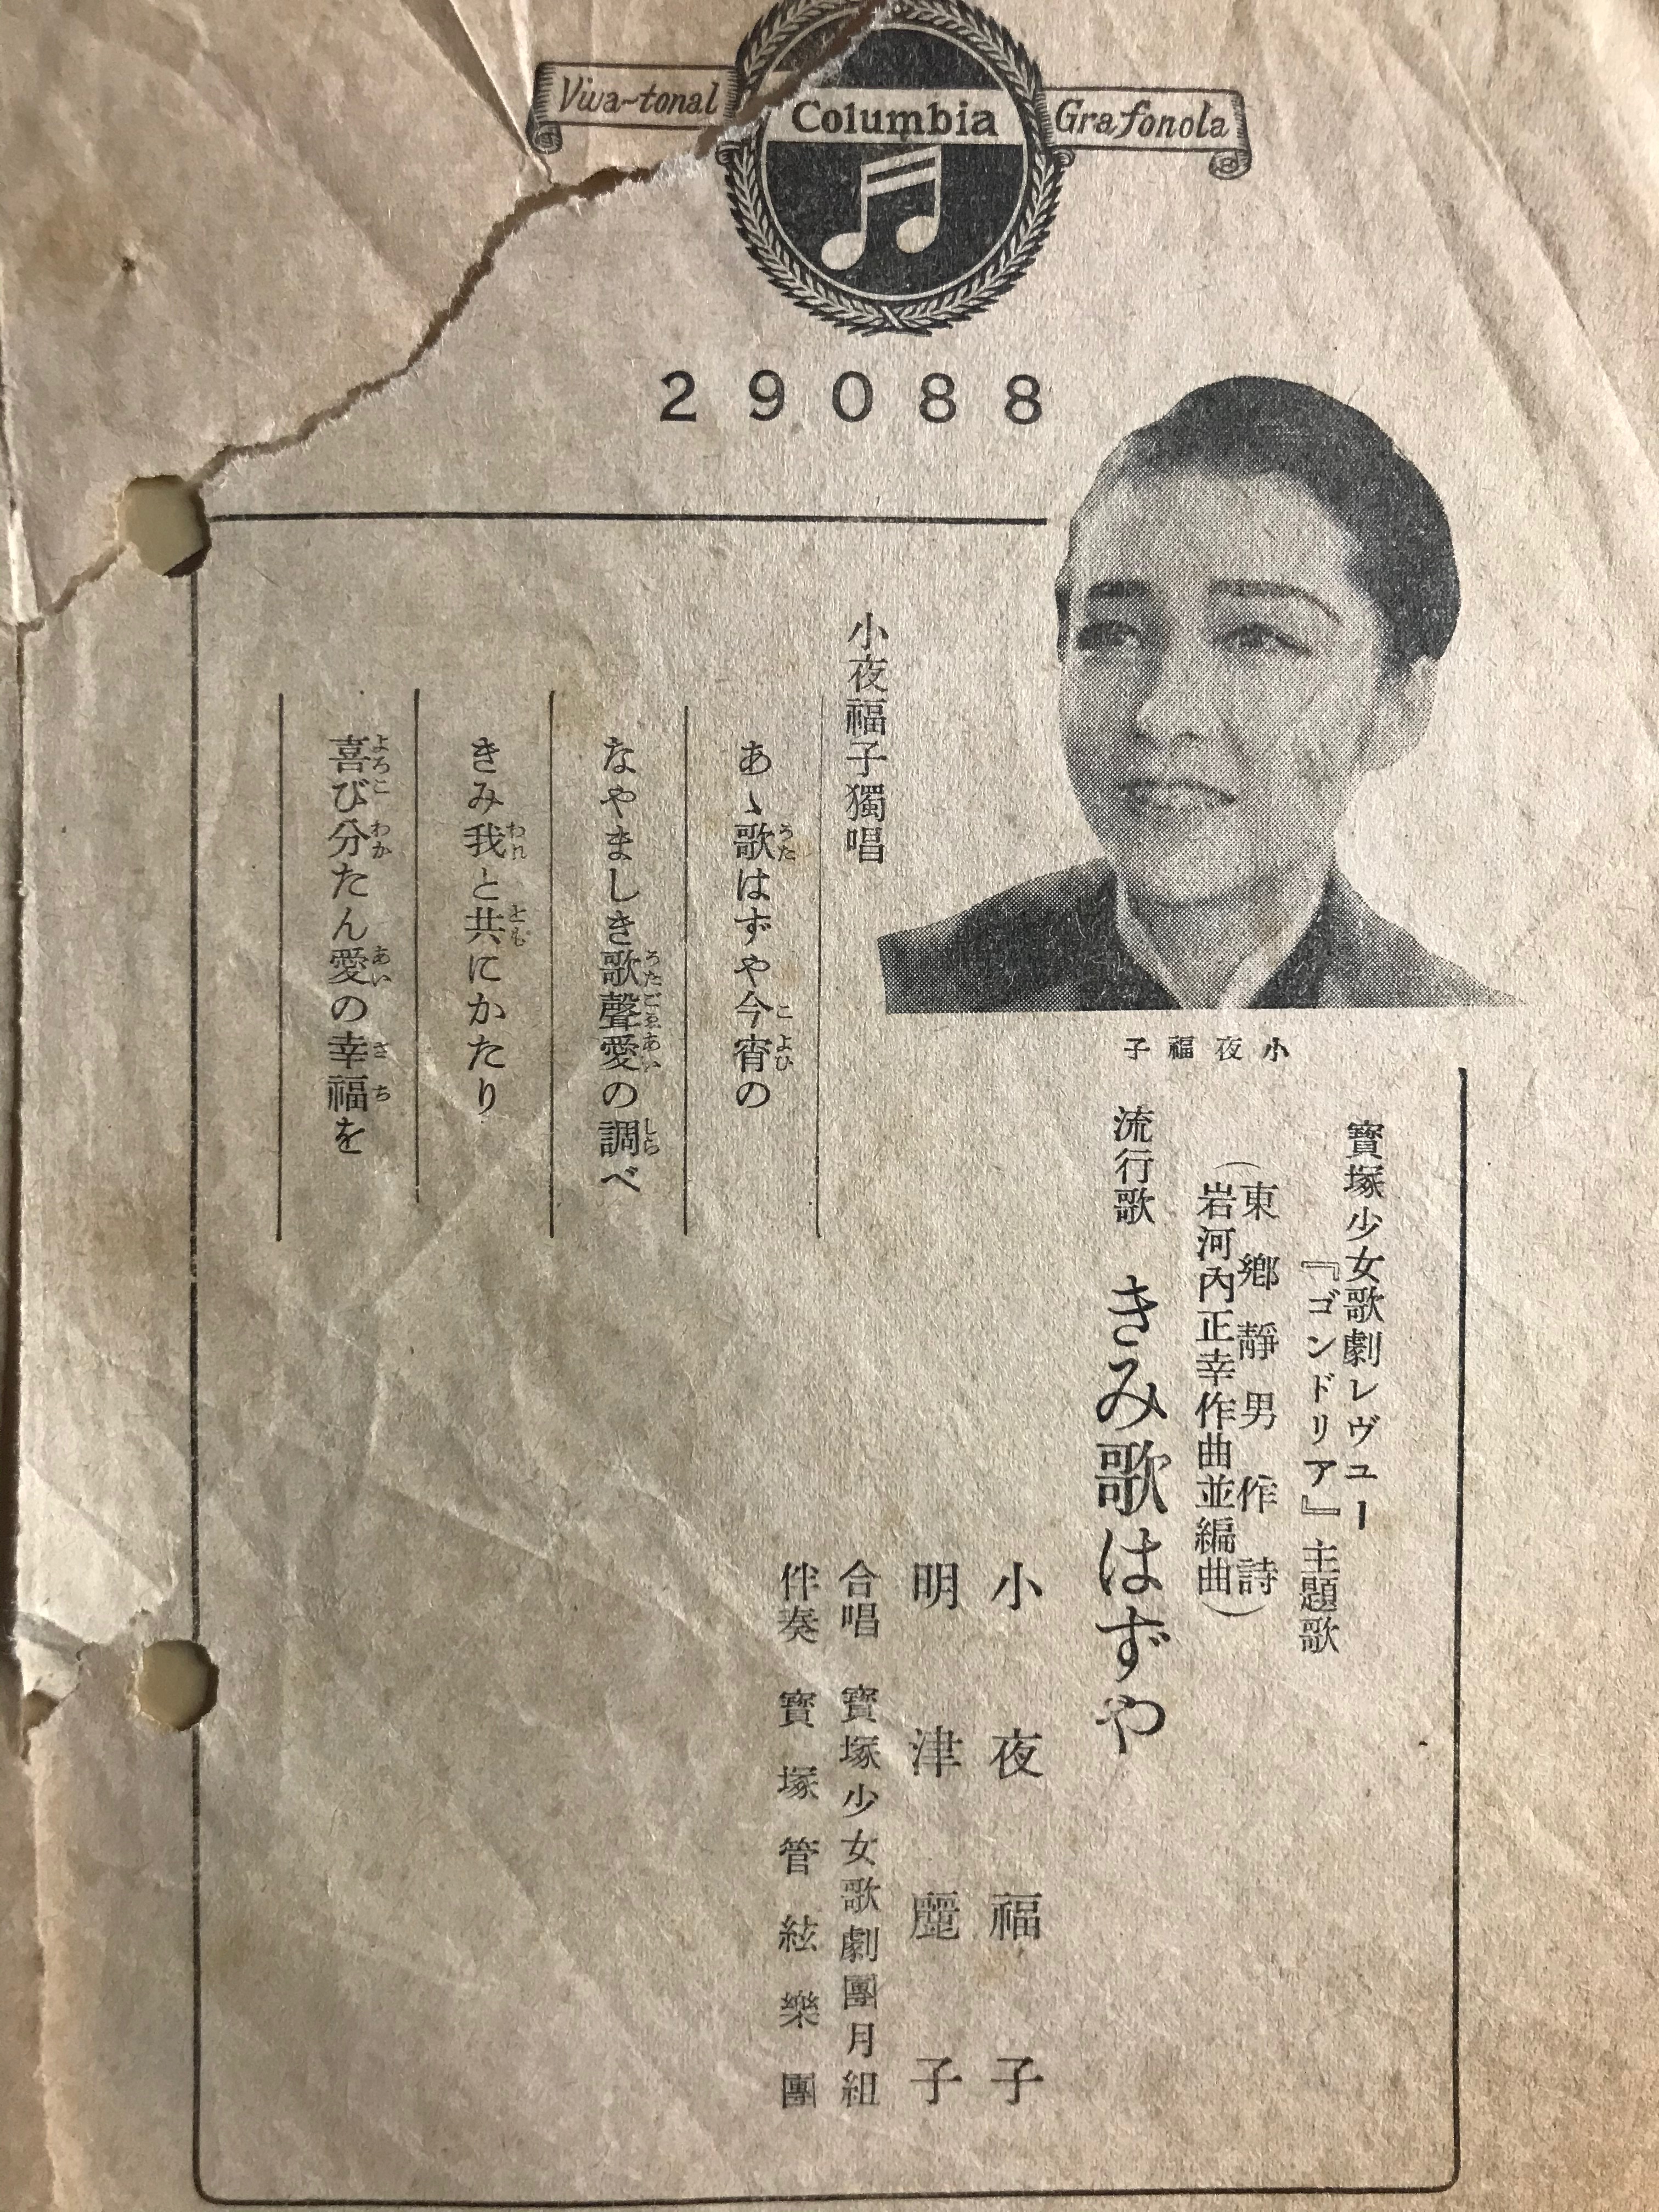 Viva-tonal
Columbia
Grafonola
29088
子福夜小
寶塚少女歌劇レヴユー
『ゴンドリア』主題歌
(東鄕靜男作詩
岩河內正幸作曲並編曲)
流行歌 きみ歌はずや
小夜福子
明津麗子
合唱 寶塚少女歌劇團月組
伴奏 寶塚管絃樂團
小夜福子獨唱
あゝ歌はずや今宵の
うた こよひ
なやましき歌聲愛の調べ
うたごゑあい しら
きみ我と共にかたり
われ とも
喜び分たん愛の幸福を
よろこ わか あい さち